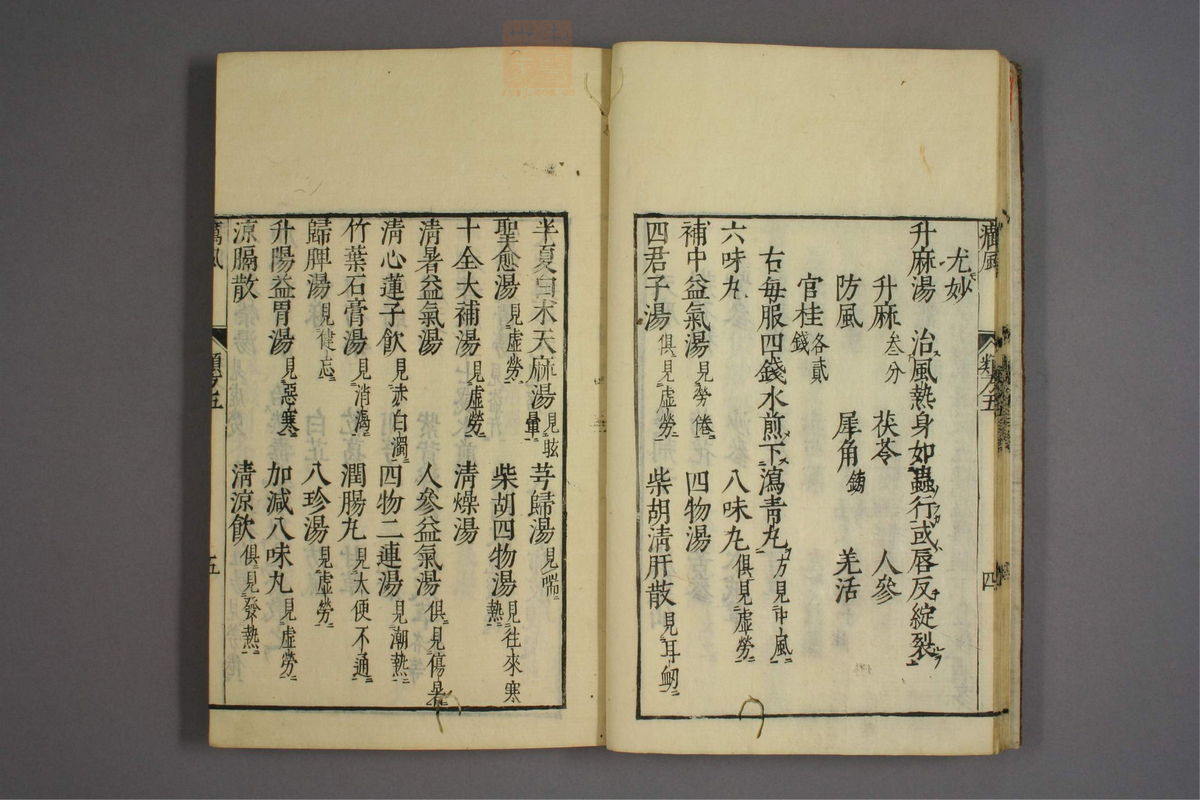 癘風 類五 四
尤妙
升麻湯 治風熱身如蟲行或唇反綻裂
升麻叁分 茯苓 人參
防風 犀角鎊 羌活
官桂各貳錢
右每服四錢水煎下瀉青丸方見中風
六味丸 八味丸俱見虛勞
補中益氣湯見勞倦 四物湯
四君子湯俱見虛勞 柴胡清肝散見耳衂
半夏白朮天麻湯見眩暈 芎歸湯見喘
聖愈湯見虛勞 柴胡四物湯見往來寒熱
十全大補湯見虛勞 清燥湯
清暑益氣湯 人參益氣湯俱見傷暑
清心蓮子飲見赤白濁 四物二連湯見潮熱
竹葉石膏湯見消渴 潤腸丸見大便不通
歸脾湯見健忘 八珍湯見虛勞
升陽益胃湯見惡寒 加減八味丸見虛勞
涼膈散 清涼飲俱見發熱
癘風 類五 五